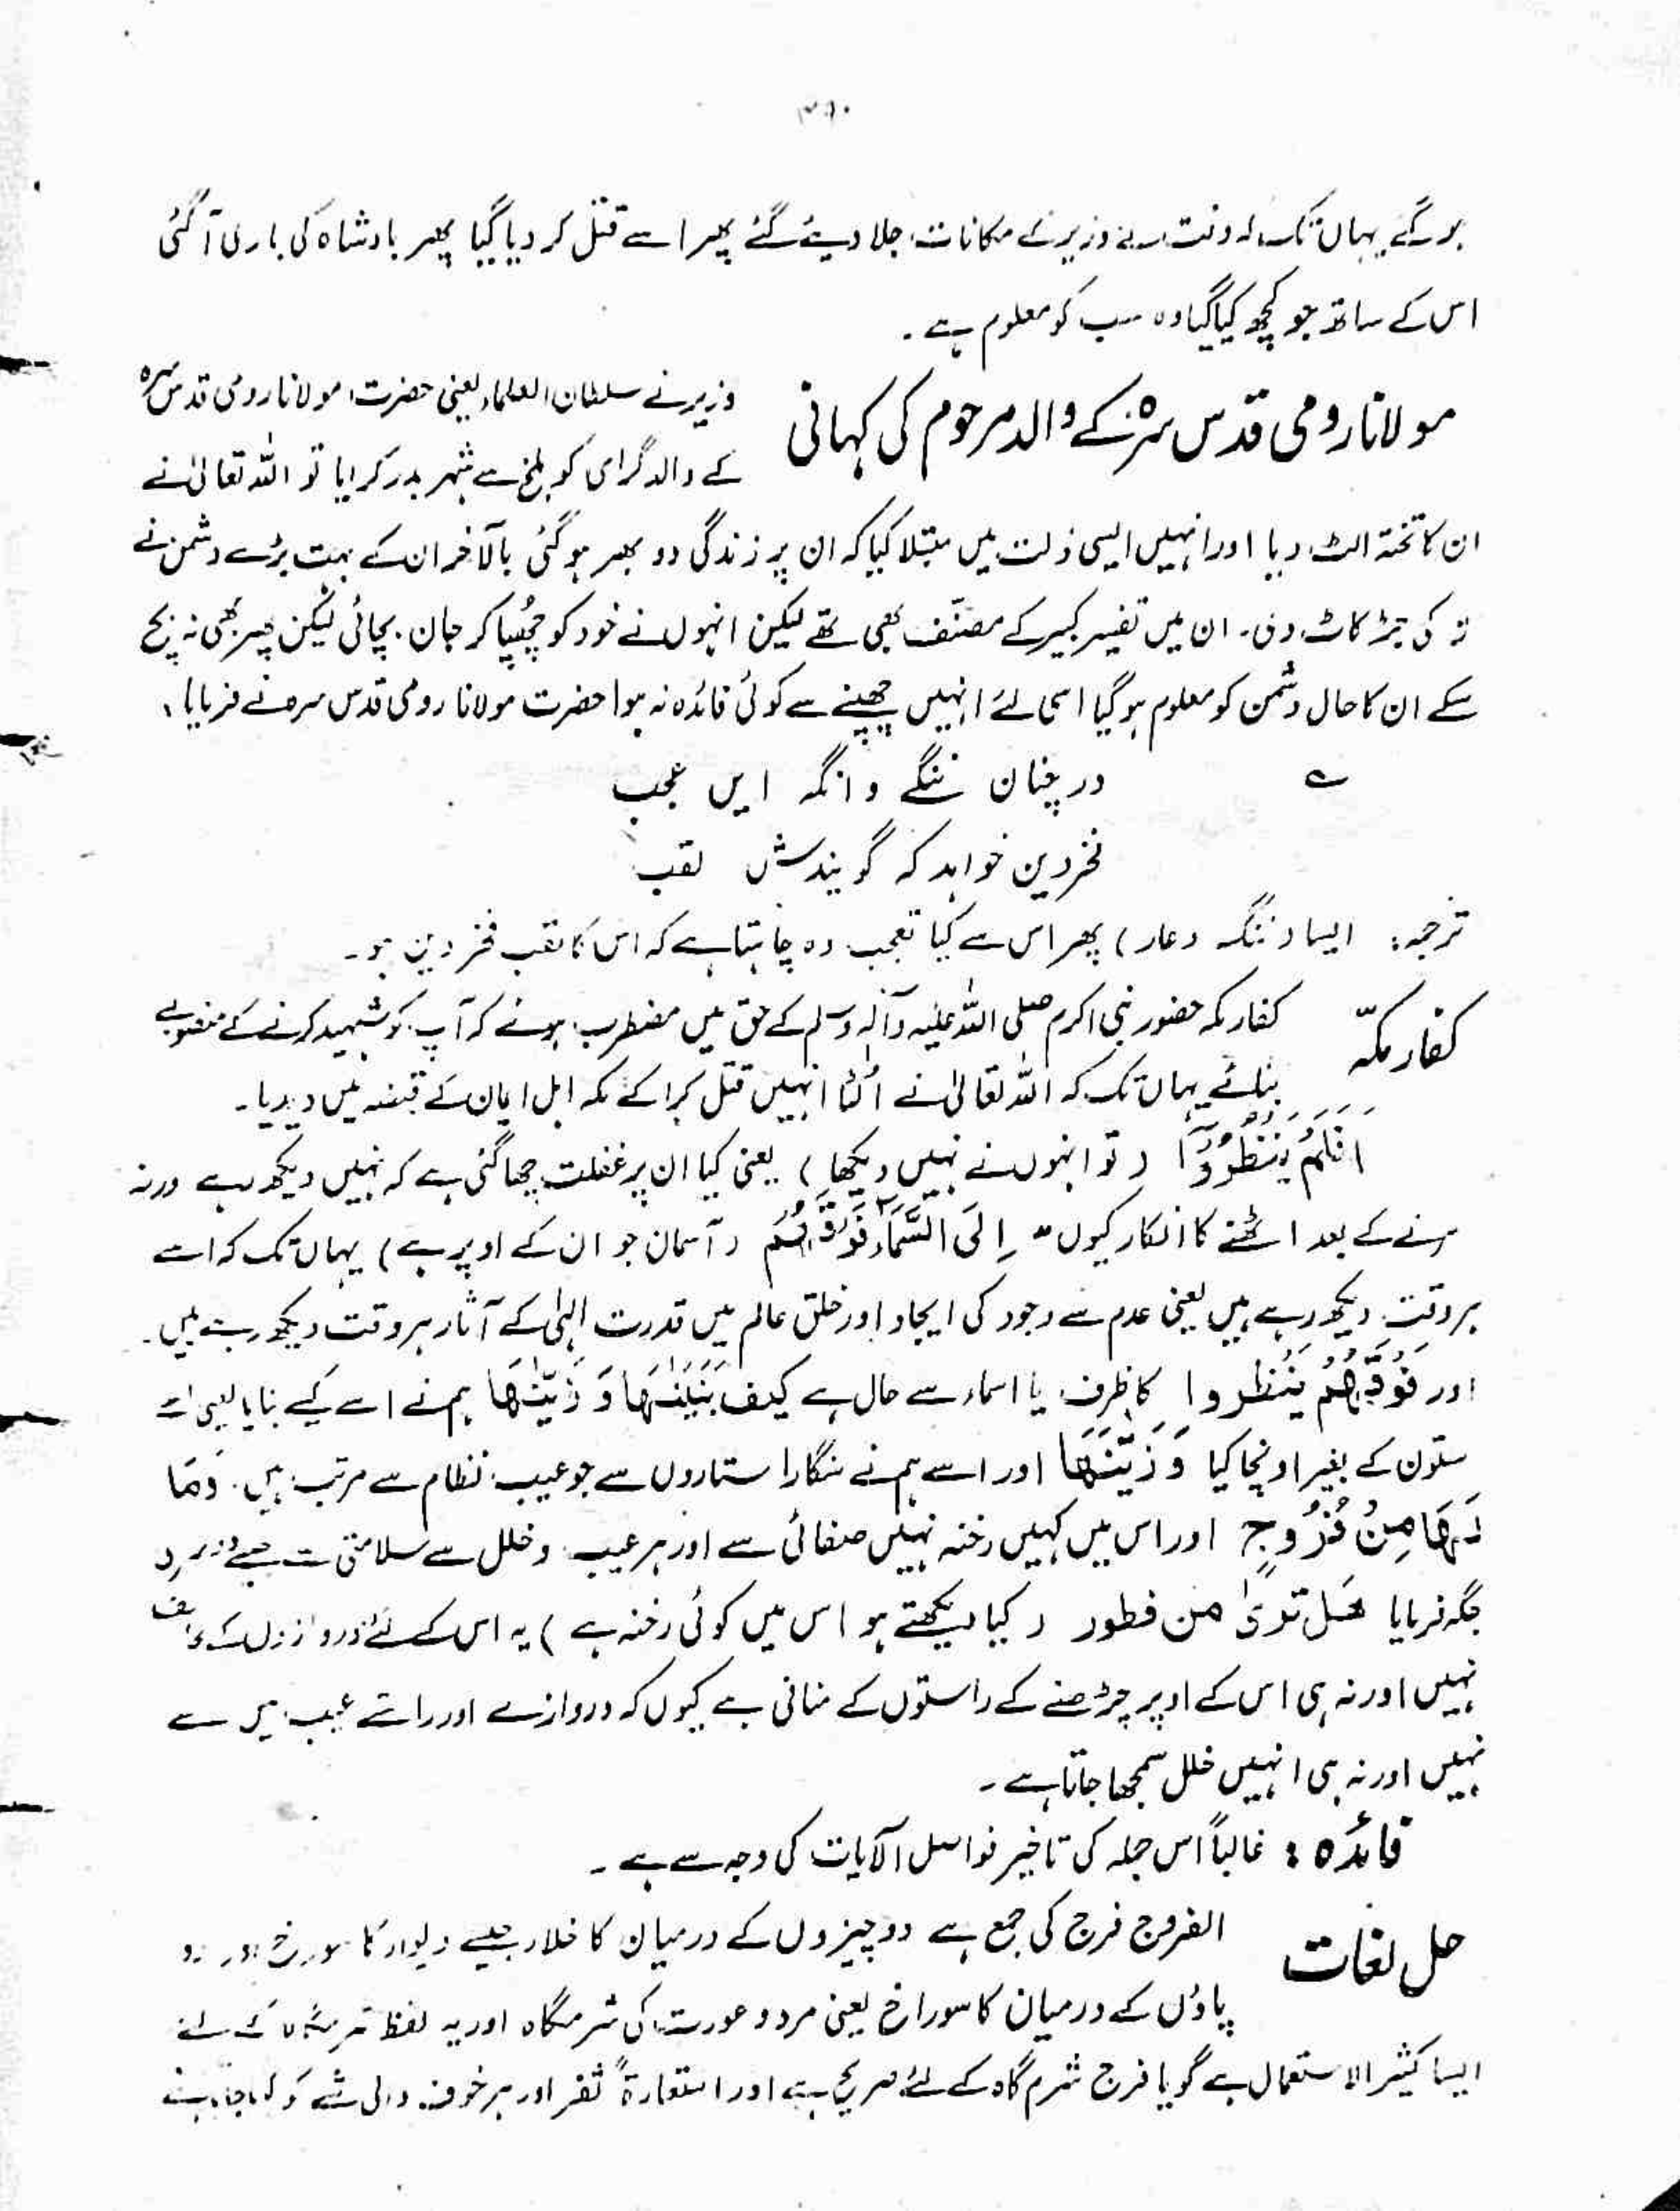 ہو گئے یہاں تک وزیر کے مکانات جلا دیئے گئے پھر اسے قتل کر دیا گیا پھر بادشاہ کی باری آگئی
اس کے ساتھ جو کچھ کیا گیا وہ سب کو معلوم ہے ۔
مولانا رومی قدس سرہٗ کے والد مرحوم کی کہانی
وزیر نے سلطان العلماء یعنی حضرت مولانا رومی قدس سرہ
کے والد گرامی کو بلخ سے شہر بدر کرایا تو اللہ تعالیٰ نے
ان کا تختہ الٹ دیا اور انہیں ایسی ذلت میں مبتلا کیا کہ ان پر زندگی دو بھر ہو گئی بالآخر ان کے بہت بڑے دشمن نے
کی جڑ کاٹ دی۔ ان میں تفسیر کبیر کے مصنّف بھی تھے لیکن انہوں نے خود کو چُھپا کر جان بچائی لیکن پھر بھی نہ بچ
سکے ان کا حال دشمن کو معلوم ہو گیا اسی لئے انہیں چھپنے سے کوئی فائدہ نہ ہوا حضرت مولانا رومی قدس سرہ نے فرمایا ،
؎ در چنان ننگے وانگہ ایں عجب
فخر دین خواہد کہ گویندش لقب
ترجمہ : ایسا (ننگ و عار) پھر اس سے کیا تعجب وہ چاہتا ہے کہ اس کا لقب فخر دین ہو ۔
کفار مکّہ
کفار مکہ حضور نبی اکرم صلی اللہ علیہ وآلہ وسلم کے حق میں مضطرب ہوئے کہ آپ کو شہید کرنے کے منصوبے
بنائے یہاں تک کہ اللہ تعالیٰ نے اُلٹا انہیں قتل کرا کے مکہ اہل ایمان کے قبضہ میں دیدیا ۔
اَفَلَمْ یَنْظُرُوْٓا ( تو انہوں نے نہیں دیکھا ) یعنی کیا ان پر غفلت چھا گئی ہے کہ نہیں دیکھ رہے ورنہ
مرنے کے بعد اٹھنے کا انکار کیوں اِلَی السَّمَآءِ فَوْقَهُمْ ( آسمان جو ان کے اوپر ہے ) یہاں تک کہ اسے
ہر وقت دیکھ رہے ہیں یعنی عدم سے وجود کی ایجاد اور خلق عالم میں قدرت الٰہی کے آثار ہر وقت دیکھ رہے ہیں ۔
اور فَوْقَهُمْ یَنْظُروا کا ظرف یا اسماء سے حال ہے کیف بَنَیْنٰهَا وَ زَیَّنّٰهَا ہم نے اسے کیسے بنایا یعنی اسے
ستون کے بغیر اونچا کیا وَ زَیَّنّٰهَا اور اسے ہم نے سنگارا ستاروں سے جو عجیب نظام سے مرتب ہیں ۔ وَمَا
لَهَا مِنْ فُرُوجٍ اور اس میں کہیں رخنہ نہیں صفائی سے اور ہر عیب و خلل سے سلامتی جیسے
جگہ فرمایا هَل تریٰ من فطور ( کیا دیکھتے ہو اس میں کوئی رخنہ ہے ) یہ اس کے لئے دروازوں کے
نہیں اور نہ ہی اس کے اوپر چڑھنے کے راستوں کے منافی ہے کیوں کہ دروازے اور راستے عیب میں سے
نہیں اور نہ ہی انہیں خلل سمجھا جاتا ہے ۔
فائدہ : غالباً اس جملہ کی تاخیر فواصل الآیات کی وجہ سے ہے ۔
حل لغات
الفروج فرج کی جمع ہے دو چیزوں کے درمیان کا خلا جیسے دیوار کا سوراخ اور دو
پاؤں کے درمیان کا سوراخ یعنی مرد و عورت کی شرمگاہ اور یہ لفظ شرمگاہ کے لئے
ایسا کثیر الاستعمال ہے گویا فرج شرم گاہ کے لئے صریح ہے اور استعارۃً ثغر اور ہر خوف والی شے کو کہا جاتا ہے